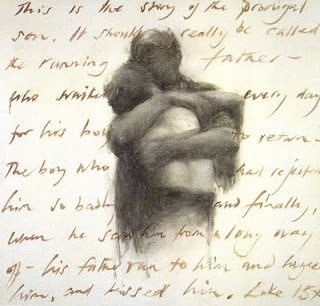 This is the story of the prodigal
son. It should really be called
the running father -
who waited every day
for his boy to return -
The boy who had rejected
him so badly and finally,
when he saw him from a long way
off - his father ran to him and hugged
him, and kissed him. Luke 15